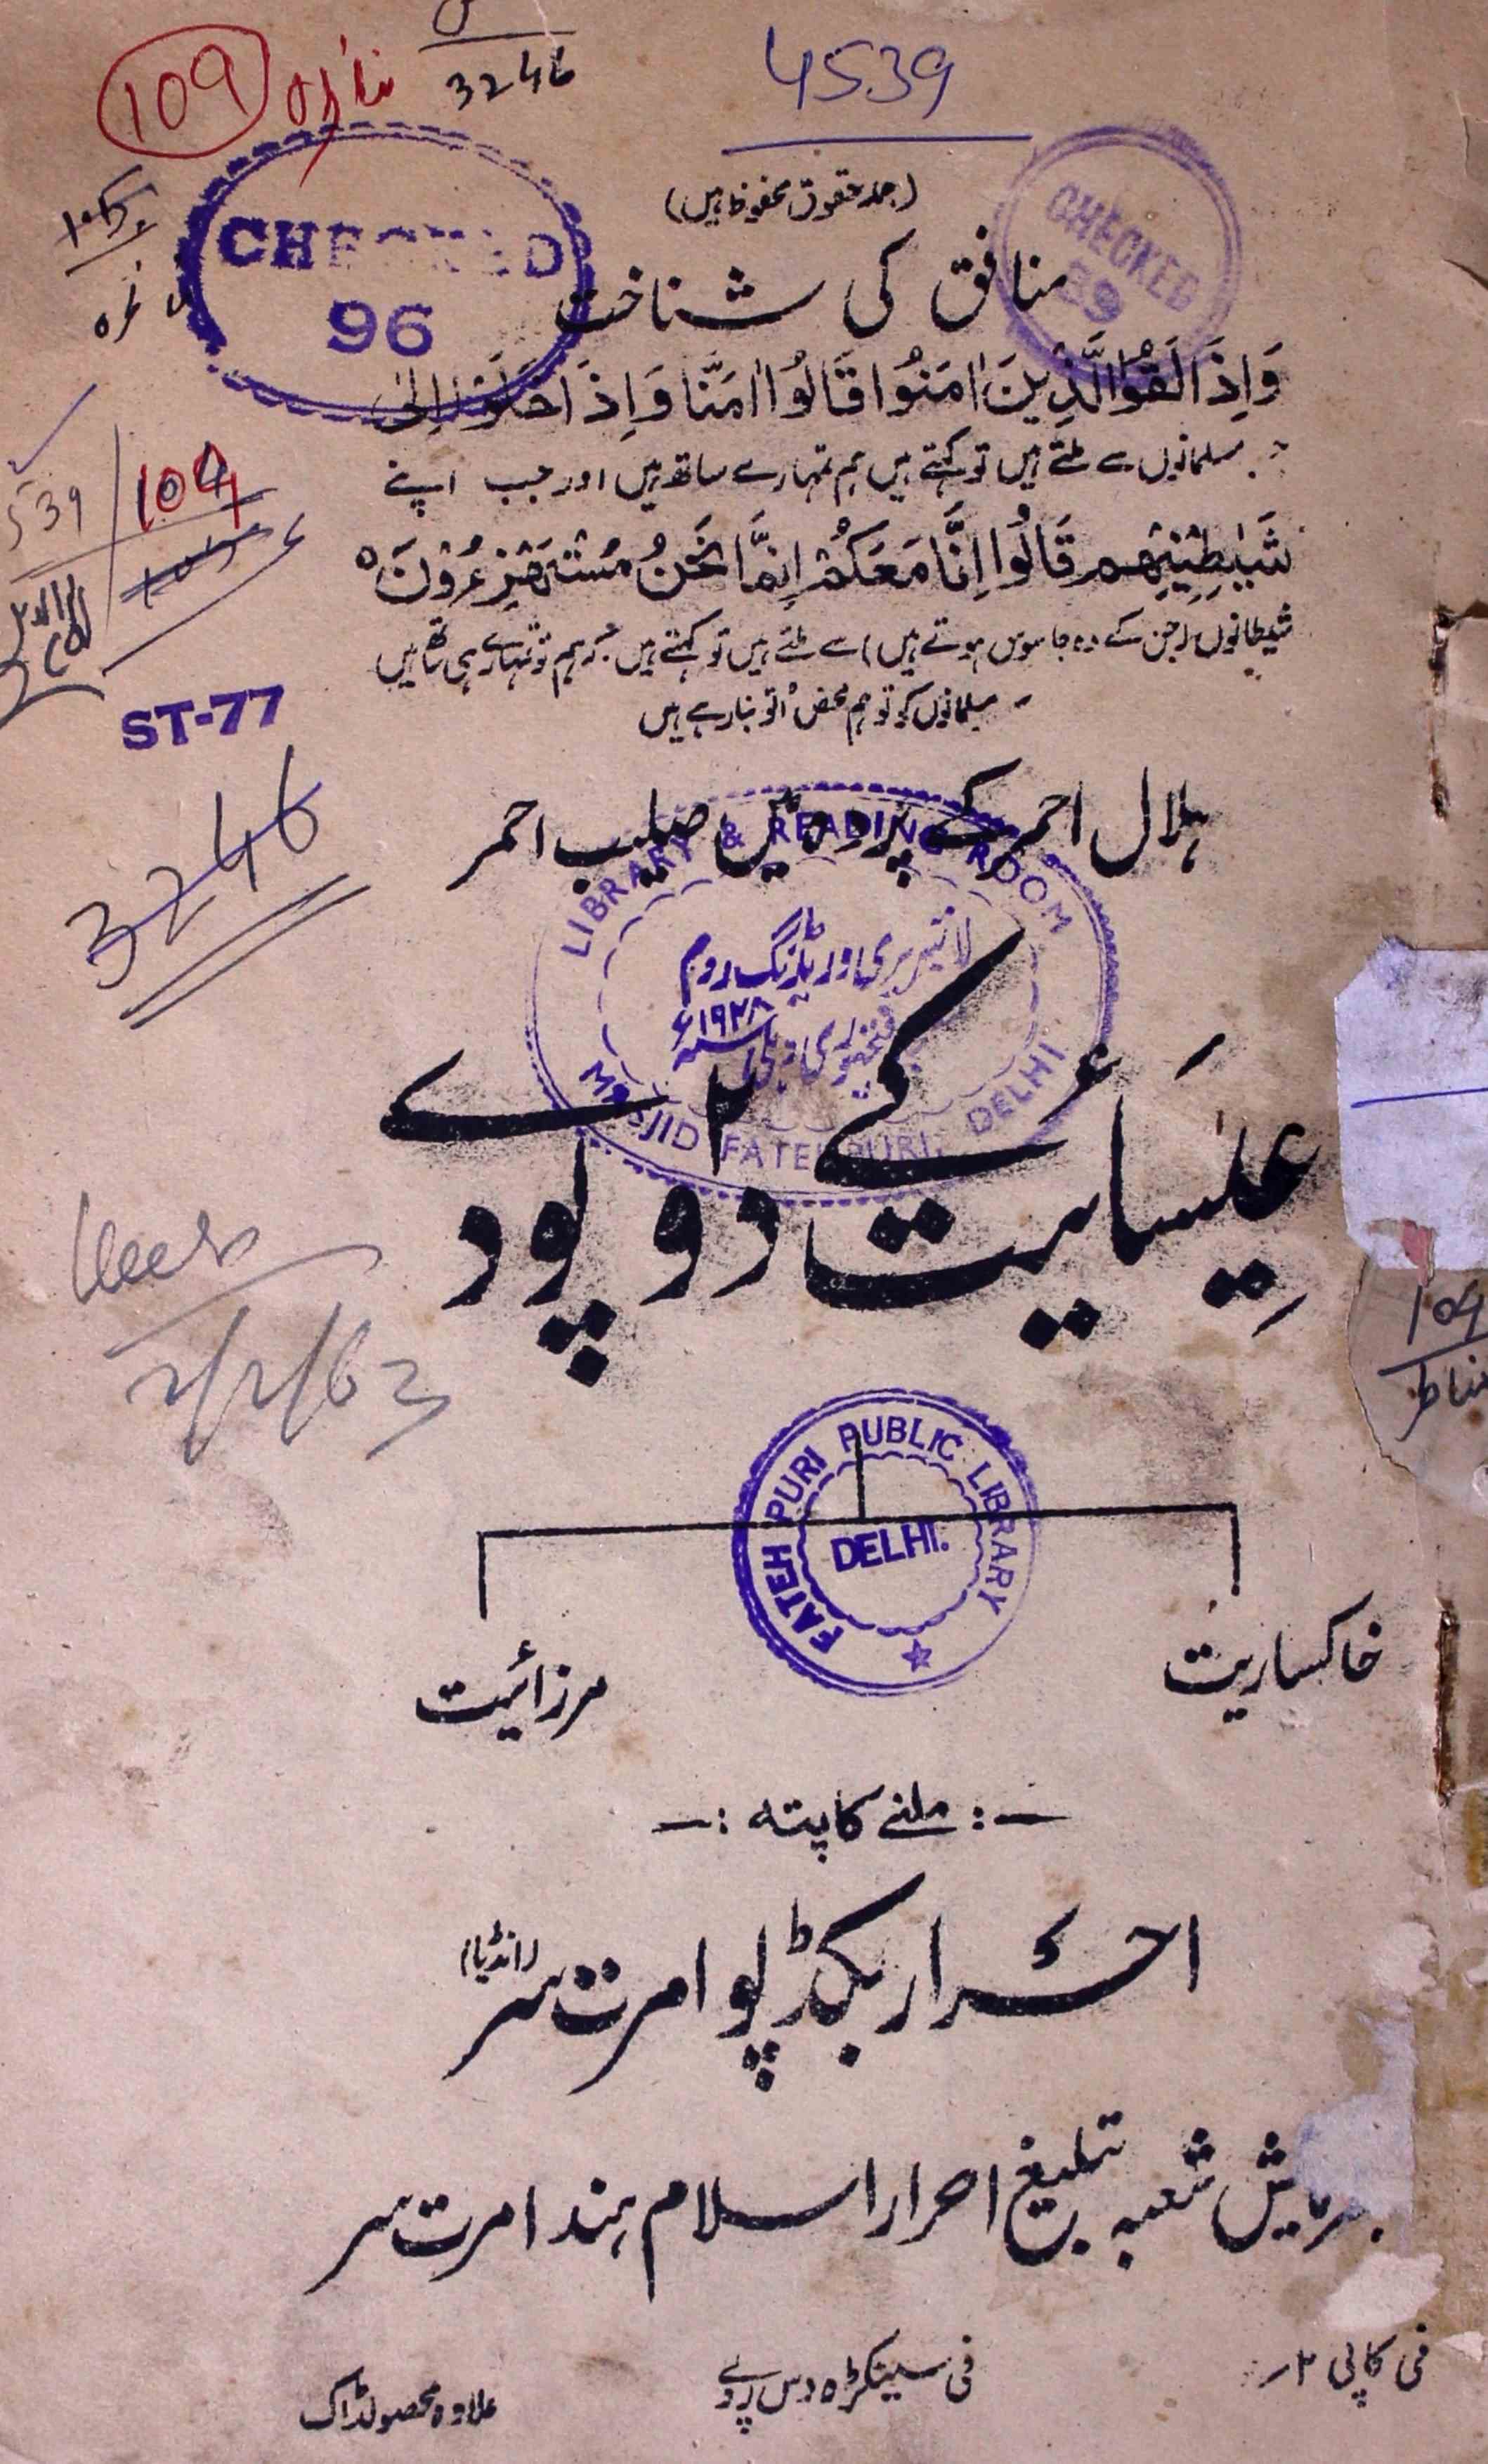 3246
4539
109
(جملہ حقوق محفوظ ہیں)
CHECKED
96
CHECKED
منافق کی شناخت
وَاِذَا لَقُوا الَّذِيْنَ اٰمَنُوْا قَالُوْا اٰمَنَّا وَاِذَا خَلَوْا اِلٰى
مسلمانوں سے ملتے ہیں تو کہتے ہیں ہم تمہارے ساتھ ہیں اور جب اپنے
شَيٰطِيْنِهِمْ قَالُوْا اِنَّا مَعَكُمْ اِنَّمَا نَحْنُ مُسْتَهْزِءُوْنَ ه
شیطانوں (جن کے وہ جاسوس ہوتے ہیں) سے ملتے ہیں تو کہتے ہیں کہ ہم تو تمہارے ہی ساتھ ہیں
مسلمانوں کو تو ہم محض اُلّو بنا رہے ہیں
539
104
ST-77
3246
ہلال احمر کے پردہ میں صلیب احمر
LIBRARY & READING ROOM
لائبریری اور ریڈنگ روم
فتحپوری دہلی
سنہ ۱۹۲۸ء
MASJID FATEHPURI, DELHI
عیسائیت کے ۲ دو پودے
2/2/63
104
مناظر
FATEH PURI PUBLIC LIBRARY
DELHI.
خاکساریت
مرزائیت
—: ملنے کا پتہ :—
احرار بکڈپو امرت سر (انڈیا)
شعبہ تبلیغ احرار اسلام ہند امرت سر
فی کاپی ۲؍
فی سینکڑہ دس روپے
علاوہ محصولڈاک